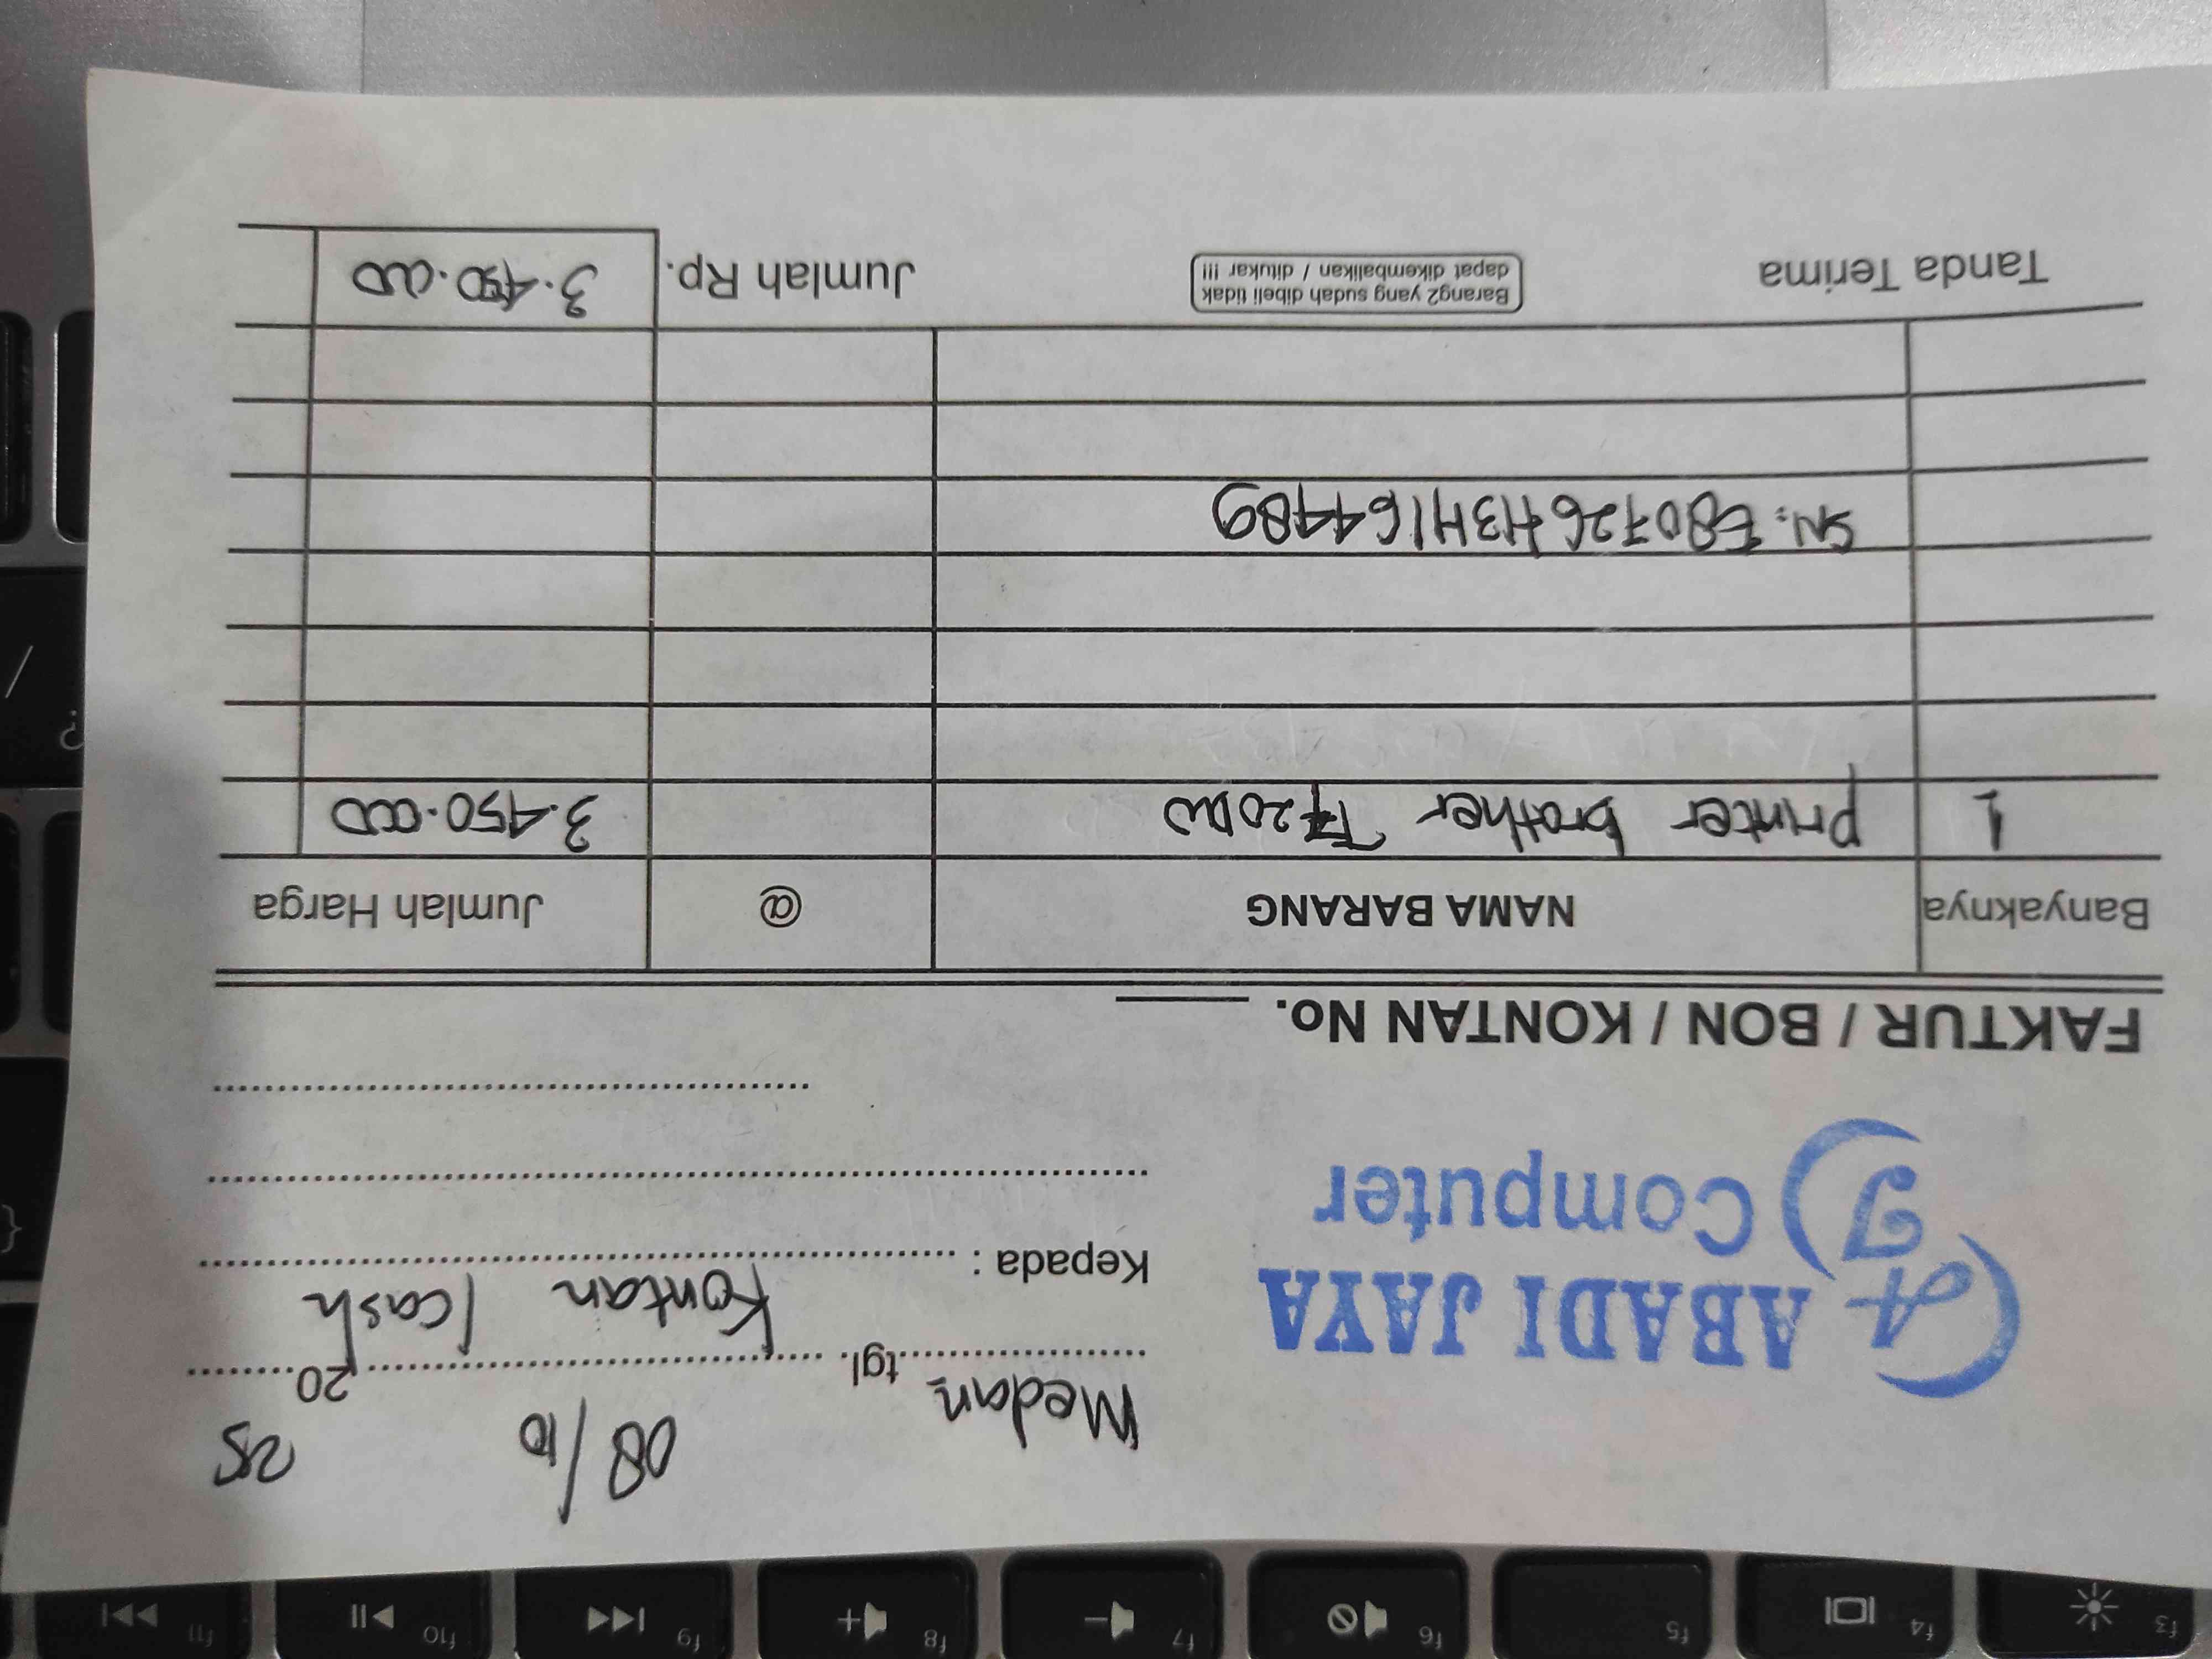 Medan tgl. 08/10 2025
Kontan / cash
Kepada :
A J
ABADI JAYA
Computer
FAKTUR / BON / KONTAN No.
Banyaknya NAMA BARANG @ Jumlah Harga
1 printer brother T720DW 3.450.000
SN: E80726H3H164489
Tanda Terima
Barang2 yang sudah dibeli tidak
dapat dikembalikan / ditukar !!!
Jumlah Rp. 3.450.000
f3 f4 f5 f6 f7 f8 f9 f10 f11